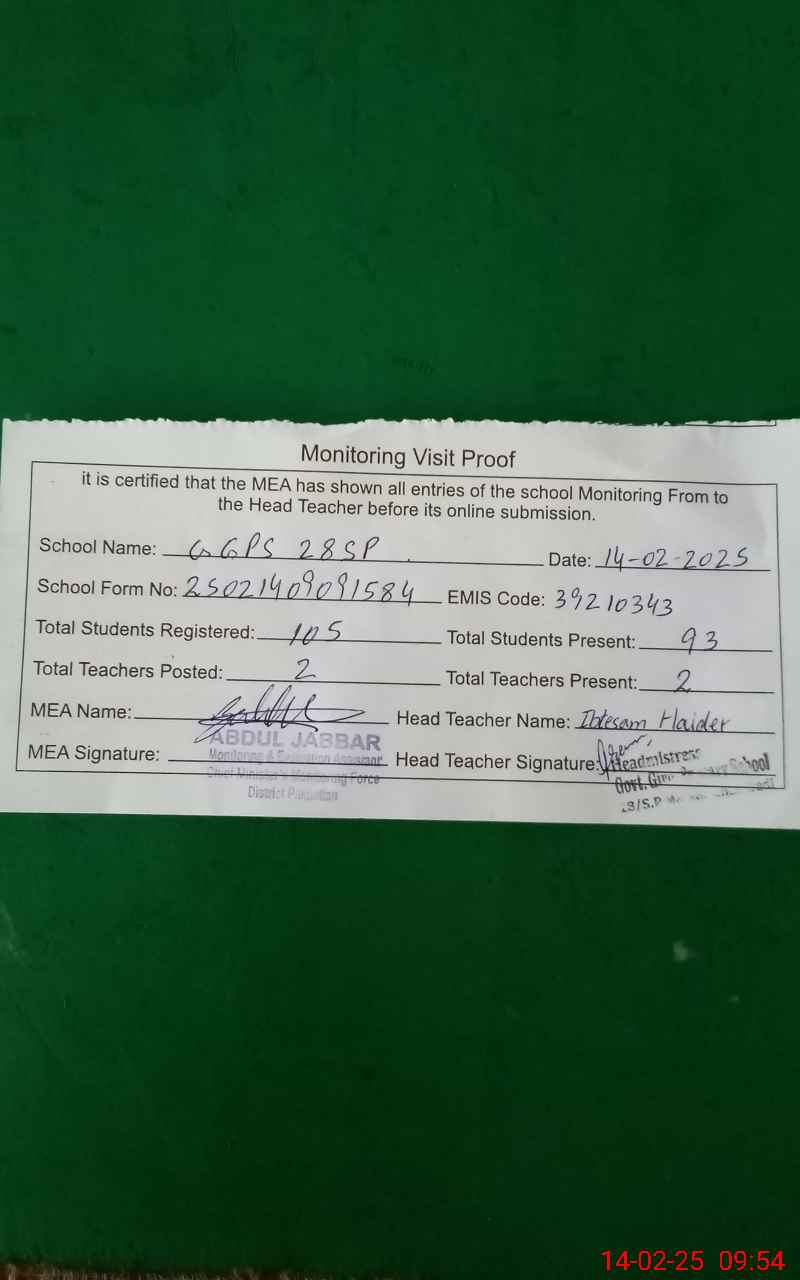 Monitoring Visit Proof
it is certified that the MEA has shown all entries of the school Monitoring From to
the Head Teacher before its online submission.
School Name: GGPS 28SP Date: 14-02-2025
School Form No: 25021409091584 EMIS Code: 39210343
Total Students Registered: 105 Total Students Present: 93
Total Teachers Posted: 2 Total Teachers Present: 2
MEA Name: Head Teacher Name: Ibtesam Haider
ABDUL JABBAR
MEA Signature: Monitoring & Evaluation Assistant Head Teacher Signature: Headmistress
Chief Minister's Monitoring Force Govt. School
District Pakpattan /S.P
14-02-25 09:54